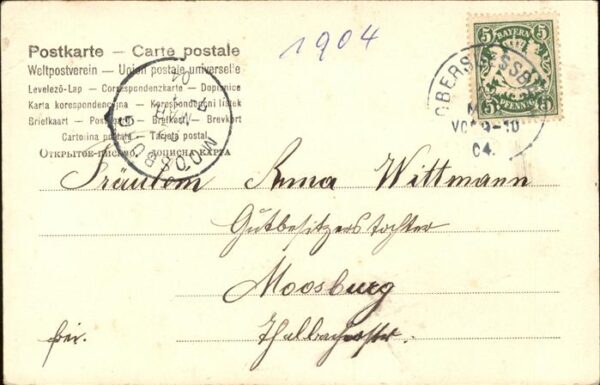 1904
Postkarte — Carte postale
Weltpostverein — Union postale universelle
Levelező-Lap — Correspondenzkarte — Dopisnice
Karta korespondencyjna — Korespondenční lístek
Briefkaart — Postcard — Brefkort — Brevkort
Cartolina postale — Tarjeta postal
Открытое письмо.
5 BAYERN 5
5 PFENNIG 5
VOR 9-10
04.
MOOSBURG
Fräulein Anna Wittmann
Gutbesitzerstochter
Moosburg
frei. Thalbacherstr.